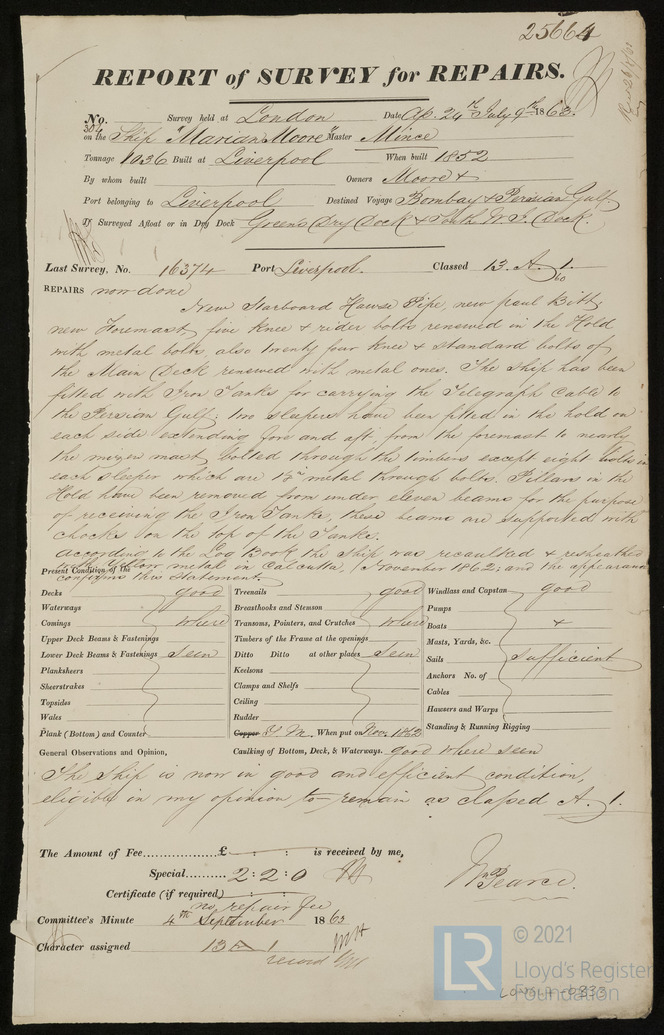 25664
REPORT of SURVEY for REPAIRS.
No. 304 Survey held at London Date Ap. 24th July 9th 1863.
on the Ship "Marian Moore" Master Mince
Tonnage 1036 Built at Liverpool When built 1852
By whom built Owners Moore &
Port belonging to Liverpool Destined Voyage Bombay & Persian Gulf
If Surveyed Afloat or in Dry Dock Green's Dry Dock & South W. I. Dock.
Last Survey, No. 16374 Port Liverpool. Classed 13. A. 1.
60
REPAIRS now done
New Starboard Hawse Pipe, new paul Bitt,
new Foremast, five knee & rider bolts renewed in the Hold
with metal bolts, also twenty four knee & standard bolts of
the Main Deck renewed with metal ones. The ship has been
fitted with Iron Tanks for carrying the Telegraph Cable to
the Persian Gulf; two sleepers have been fitted in the hold on
each side extending fore and aft, from the foremast to nearly
the mizen mast, bolted through the timbers except eight bolts in
each sleeper which are metal through bolts. Pillars in the
Hold have been removed from under eleven beams for the purpose
of receiving the Iron Tanks, these beams are supported with
chocks on the top of the Tanks.
According to the Log Book the ship was recaulked & resheathed
with yellow metal in Calcutta, November 1862; and the appearance
Present Condition of the
confirms this statement.
Decks good Treenails good Windlass and Capstan good
Waterways Breasthooks and Stemson Pumps
Comings where Transoms, Pointers, and Crutches where Boats &
Upper Deck Beams & Fastenings Timbers of the Frame at the openings Masts, Yards, &c.
Lower Deck Beams & Fastenings seen Ditto Ditto at other places seen Sails sufficient
Planksheers Keelsons Anchors No. of
Sheerstrakes Clamps and Shelfs Cables
Topsides Ceiling Hawsers and Warps
Wales Rudder Standing & Running Rigging
Plank (Bottom) and Counter Copper Y. M. When put on Nov. 1862
General Observations and Opinion, Caulking of Bottom, Deck, & Waterways. good where seen
The ship is now in good and efficient condition,
eligible in my opinion to remain as classed A. 1.
The Amount of Fee £ is received by me,
Special 2:2:0
Certificate (if required)
no repair fee
Wm Pearce.
Committee's Minute 4th September 1863
Character assigned 13 A 1
record
LR © 2021
Lloyd's Register
Foundation